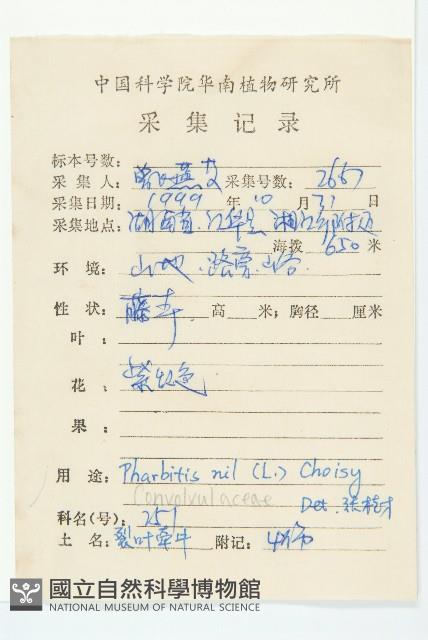 中国科学院华南植物研究所
采集记录
标本号数：
采集人： 采集号数：2667
采集日期：1999年10月31日
采集地点：湖南省.江华县
海拨 650 米
环境：山地.路旁.山谷
性状：藤本 高 米；胸径 厘米
叶：
花：紫红色
果：
用途：Pharbitis nil (L.) Choisy
Convolvulaceae Det.
科名(号)：251
土名：裂叶牵牛 附记：4份
國立自然科學博物館
NATIONAL MUSEUM OF NATURAL SCIENCE